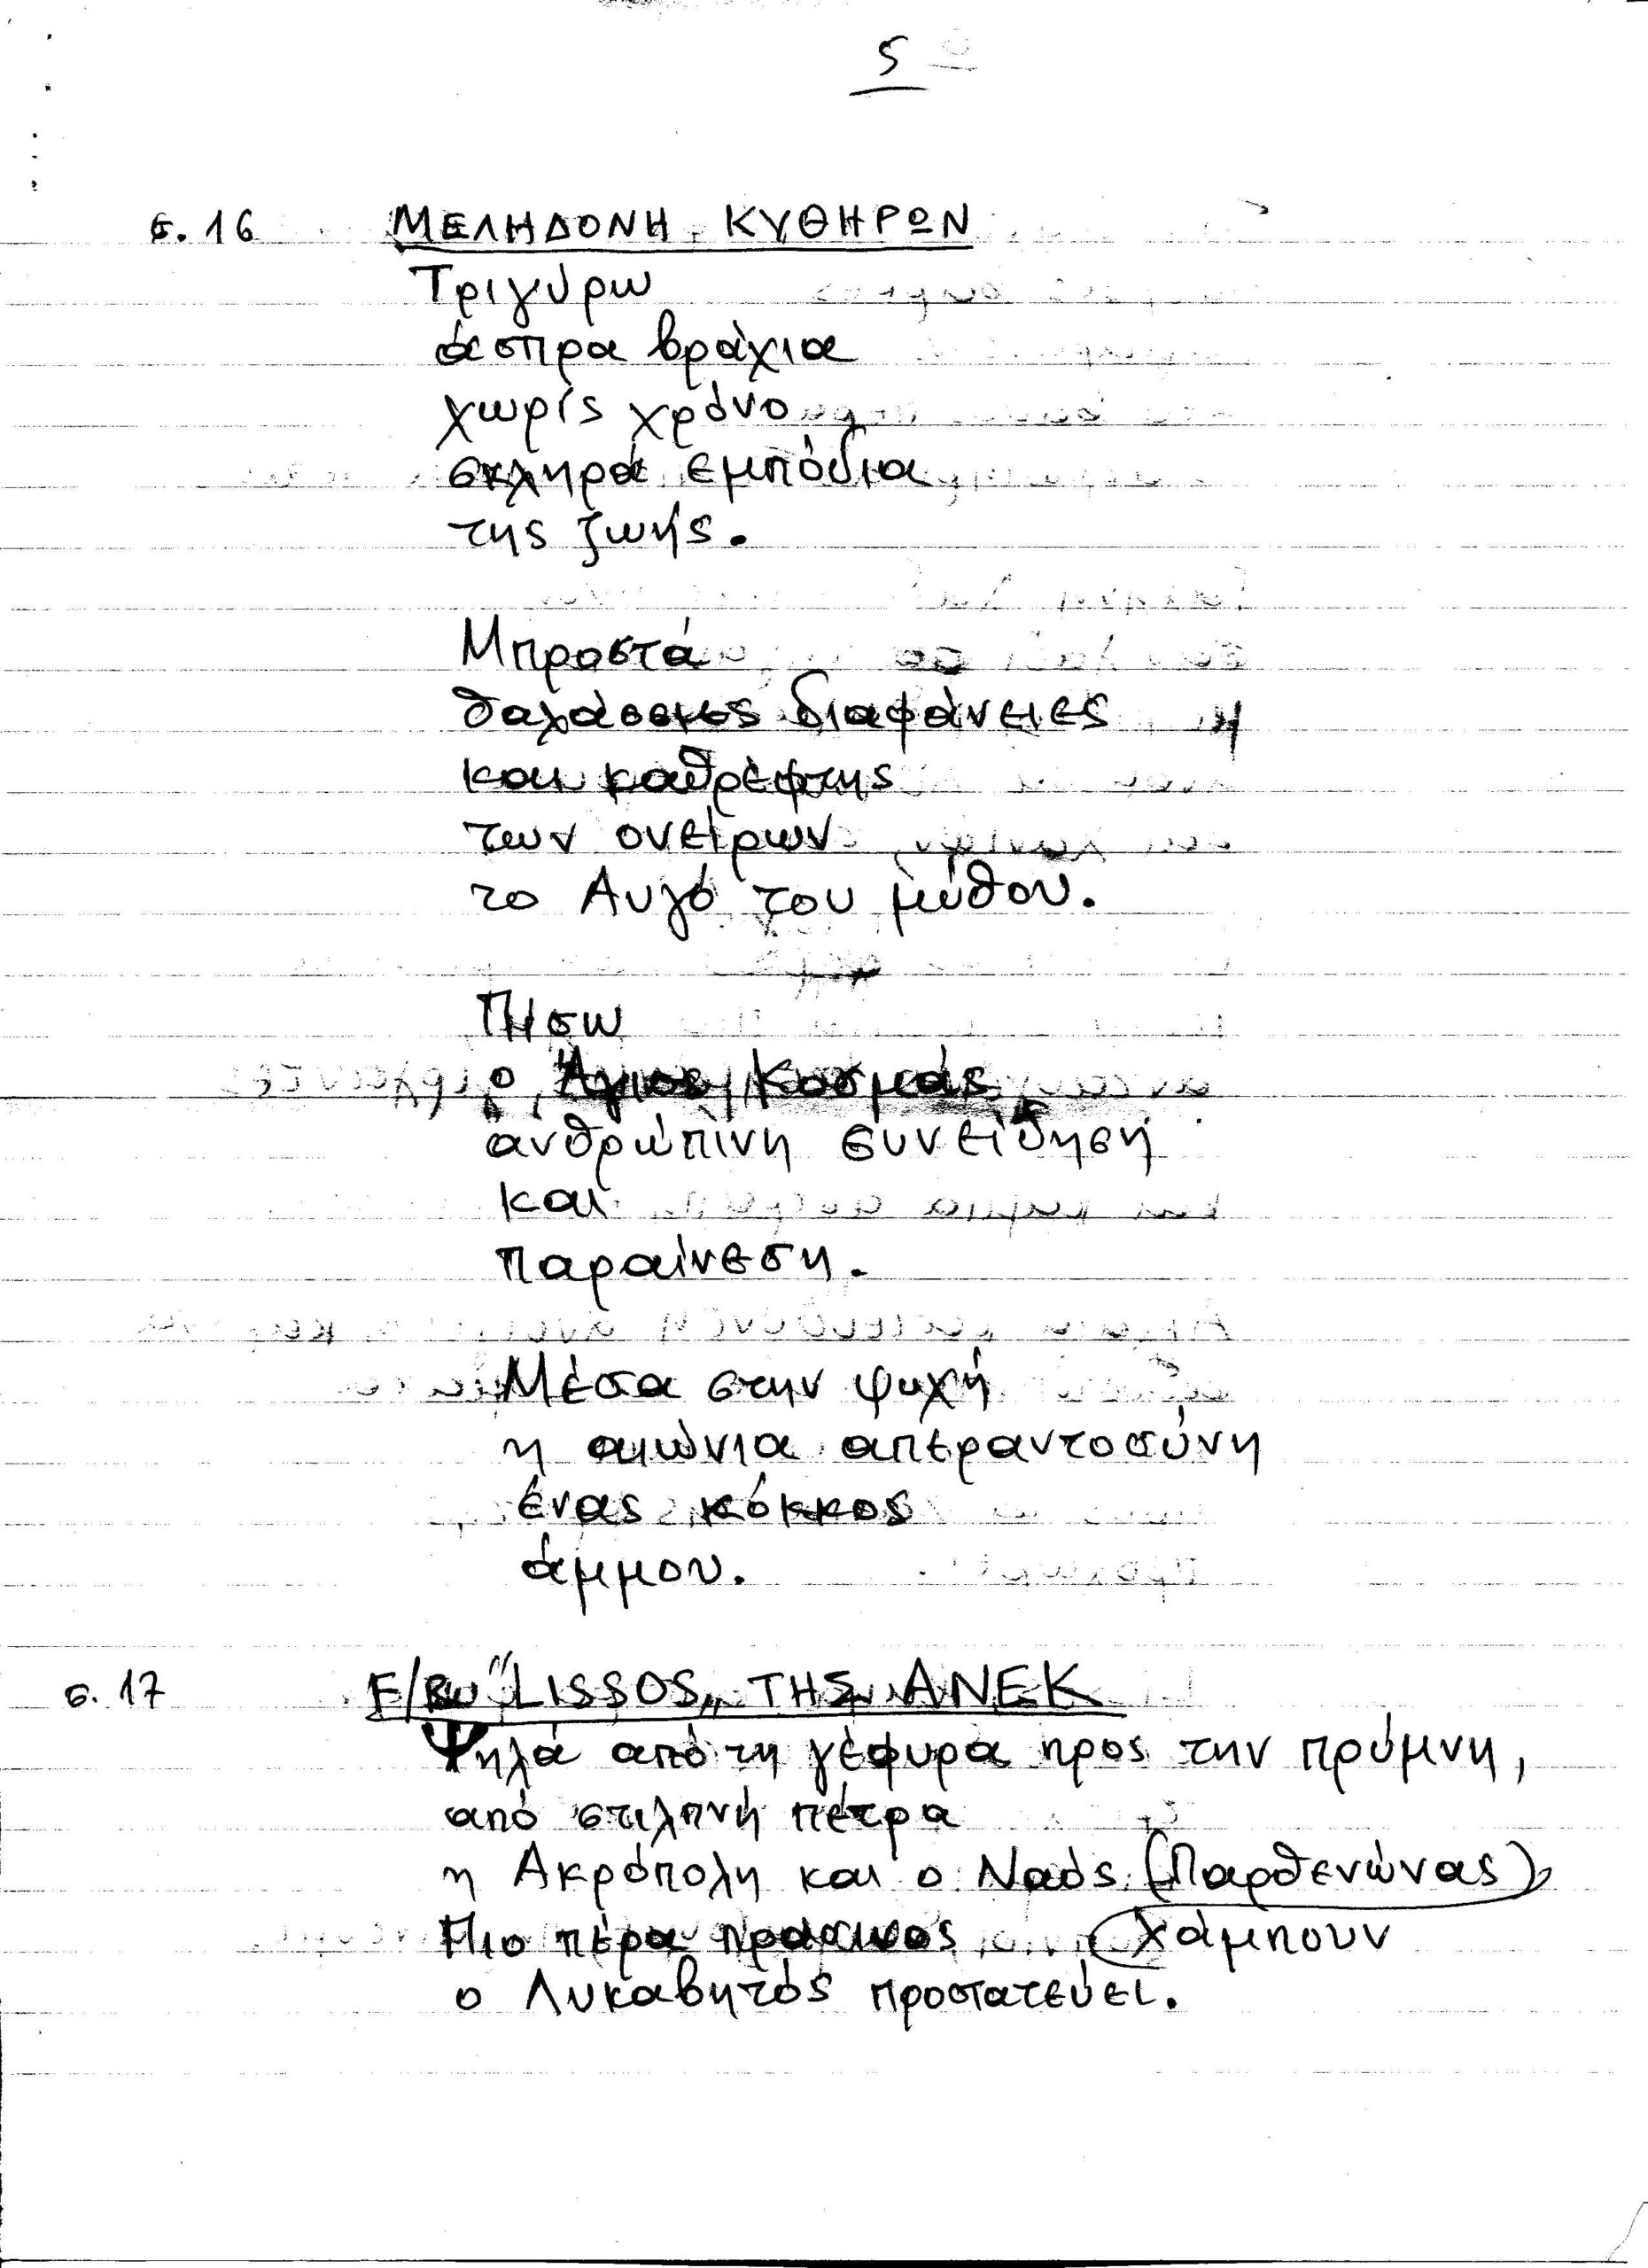 5
σ. 16 ΜΕΛΗΔΟΝΗ ΚΥΘΗΡΩΝ
Τριγύρω
άσπρα βράχια
χωρίς χρόνο
σκληρά εμπόδια
της ζωής.
Μπροστά
θαλάσσιες διαφάνειες
και καθρέφτης
των ονείρων
το Αυγό του μύθου.
Πίσω
ο Άγιος Κοσμάς
ανθρώπινη συνείδηση
και
παραίνεση.
Μέσα στην ψυχή
η αιώνια απεραντοσύνη
ένας κόκκος
άμμου.
σ. 17 F/B "LISSOS" ΤΗΣ ΑΝΕΚ
Ψηλά από τη γέφυρα προς την πρύμνη,
από στιλπνή πέτρα
η Ακρόπολη και ο Ναός (Παρθενώνας)
λάμπουν
Πιο πέρα πράσινος
ο Λυκαβητός προστατεύει.